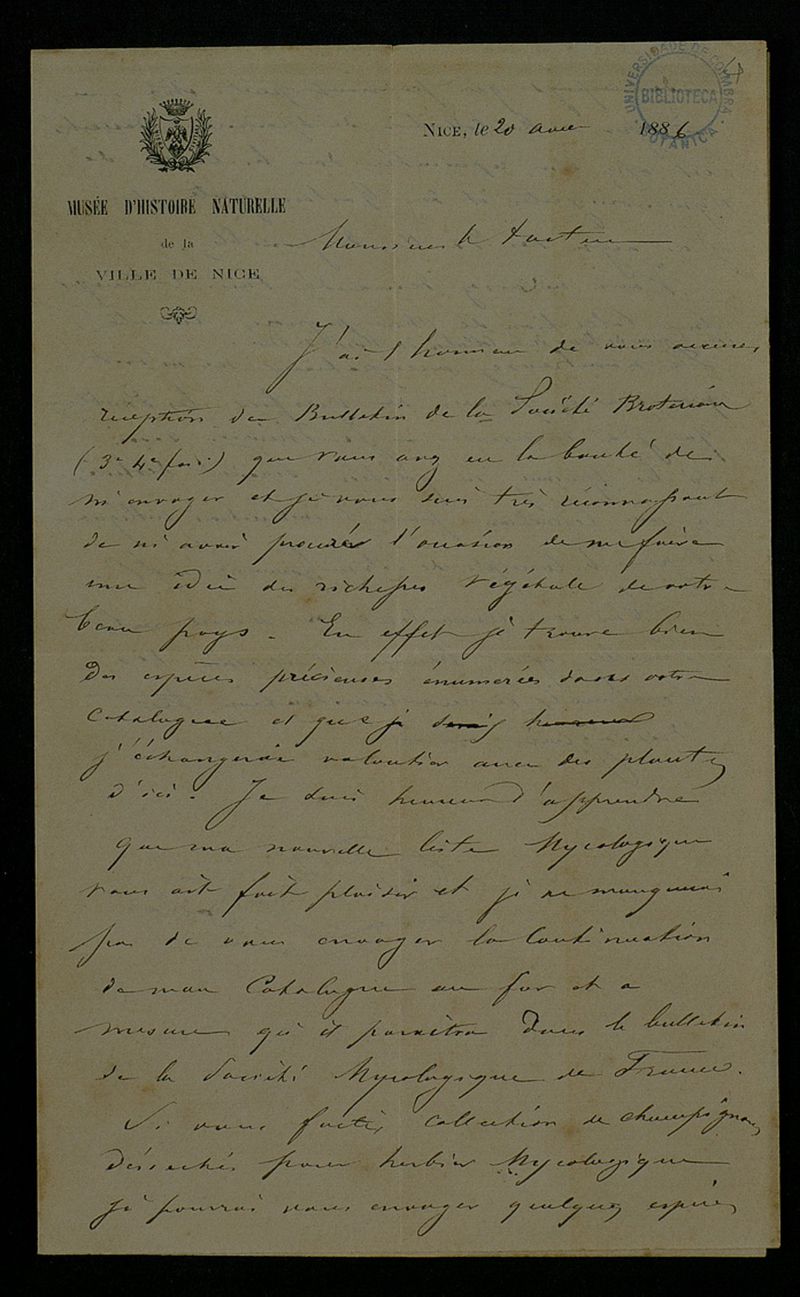 UNIVERSIDADE DE COIMBRA
BIBLIOTECA
BOTANICA
NICE, le 20 1886
MUSÉE D'HISTOIRE NATURELLE
de la
VILLE DE NICE
Monsieur le
J'ai l'honneur de vous
réception du Bulletin de la Société Brotérienne
(3e 4e fasc.) que vous avez eu la bonté de
m'envoyer et je vous suis très réconnaissant
de m'avoir procurés l'occasion de me faire
une idée des richesses végétale de votre
beau pays. En effet je trouve bien
des espèces précieuses énumerées dans votre
Catalogue et que je serais heureux
j'échangerai volontier avec des plantes
d'ici. Je suis heureux d'apprendre
que ma nouvelle liste Mycologique
vous ait fait plaisir et je ne manquerai
pas de vous envoyer la Continuation
de mon Catalogue au fur et a
mesure qu'il paraitra dans le bulletin
de la Société Mycologique de France.
Si vous faites collection de champignons
déssechés pour herbier Mycologique
je pourrai vous envoyer quelques espèces